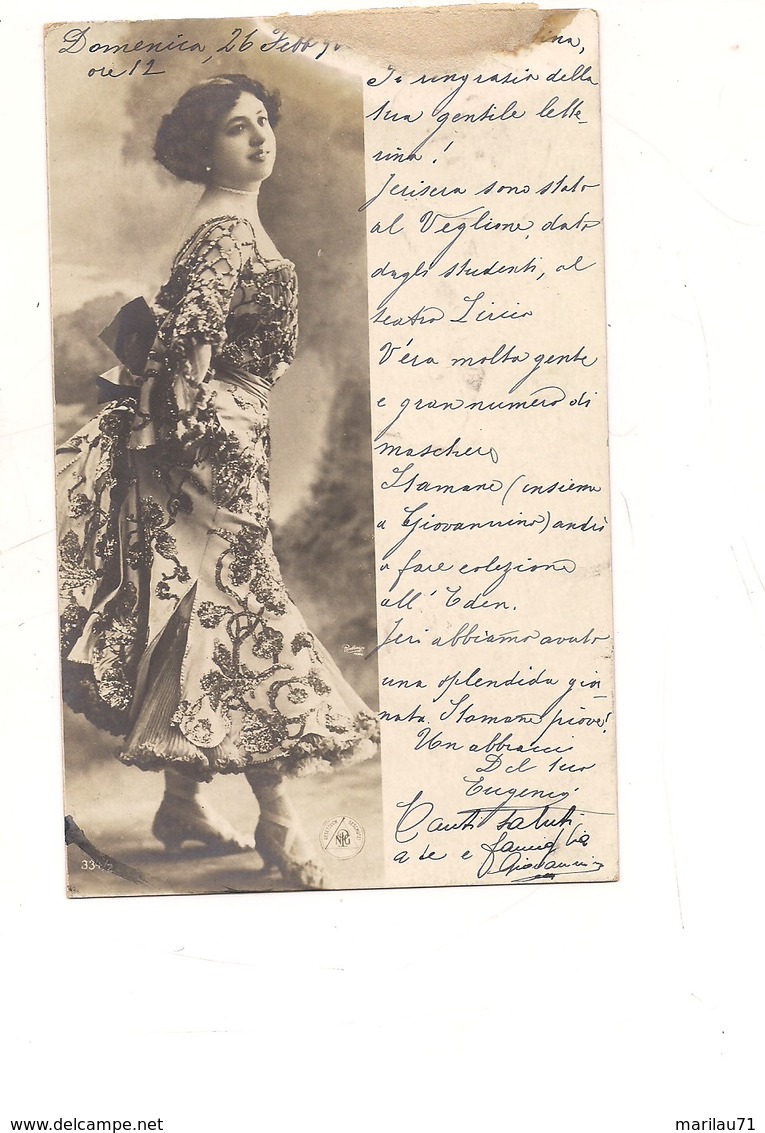 Domenica, 26 Febb
ore 12
ina,
Ti ringrazio della
tua gentile lette-
rina!
Jerisera sono stato
al Veglione, dato
dagli studenti, al
teatro Lirico
V'era molta gente
e gran numero di
maschere
Stamane (insieme
a Giovannino) andrò
a fare colezione
all' Eden.
Jeri abbiamo avuto
una splendida gior-
nata. Stamane piove!
Un abbraccio
Del tuo
Eugenio
Tanti saluti
a te e famiglia
Giovannino
NPG
delcampe.net
marilau71